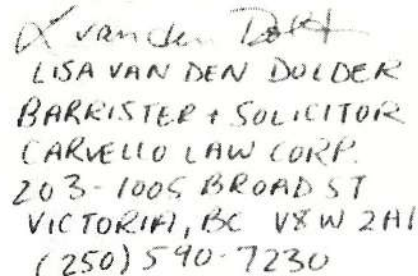 L van den Dold
LISA VAN DEN DOLDER
BARRISTER + SOLICITOR
CARVELLO LAW CORP.
203-1005 BROAD ST
VICTORIA, BC V8W 2A1
(250) 590-7230